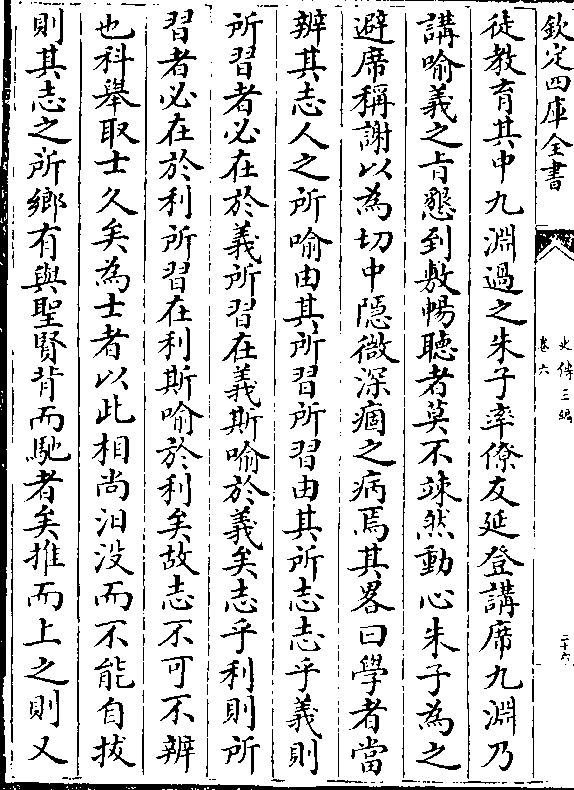 欽定四庫全書
史傳三編
卷六
二十六
徒教育其中九淵過之朱子率僚友延登講席九淵乃
講喻義之㫖懇到敷暢聽者莫不竦然動心朱子為之
避席稱謝以為切中隱微深痼之病焉其畧曰學者當
辨其志人之所喻由其所習所習由其所志志乎義則
所習者必在於義所習在義斯喻於義矣志乎利則所
習者必在於利所習在利斯喻於利矣故志不可不辨
也科舉取士久矣為士者以此相尚汩没而不能自拔
則其志之所鄉有與聖賢背而馳者矣推而上之則又